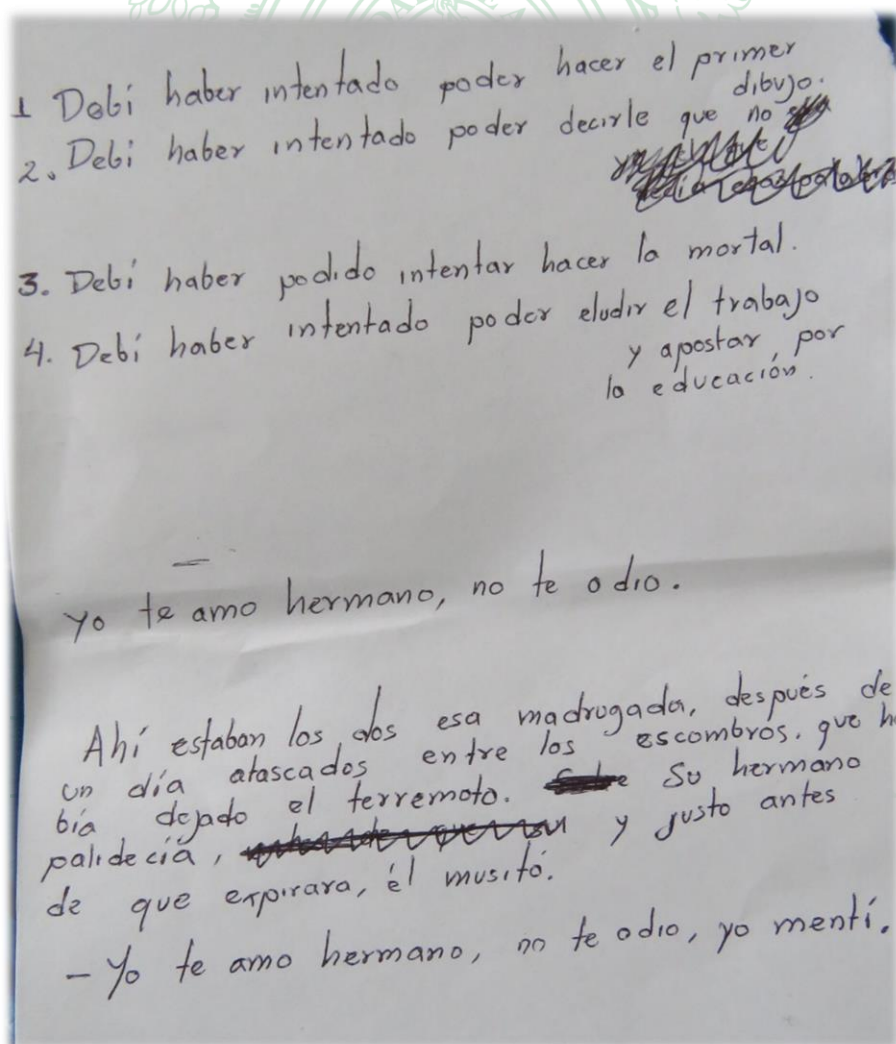 1 Debí haber intentado poder hacer el primer
dibujo.
2. Debí haber intentado poder decirle que no
3. Debí haber podido intentar hacer la mortal.
4. Debí haber intentado poder eludir el trabajo
y apostar por
la educación.
Yo te amo hermano, no te odio.
Ahí estaban los dos esa madrugada, después de
un día atascados entre los escombros, que
bía dejado el terremoto. Su hermano
palidecía, y justo antes
de que expirara, él musitó.
- Yo te amo hermano, no te odio, yo mentí.